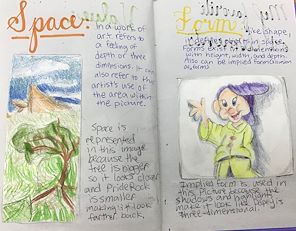 Space:
In a work of
art, refers to
a feeling of
depth or three
dimensions. It can
also refer to the
artist's use of
the area within
the picture.
Space is
represented
in this image
because the
tree is bigger
so it looks closer
and Pride Rock
is smaller
making it look
farther back.
Form:
like shape,
defines objects in space.
forms exist in 3 dimensions
with height, width, and depth.
Also can be implied
as form
Implied form is used in
this picture because the
shadows and highlights
make it look like Dopey is
three-dimensional.